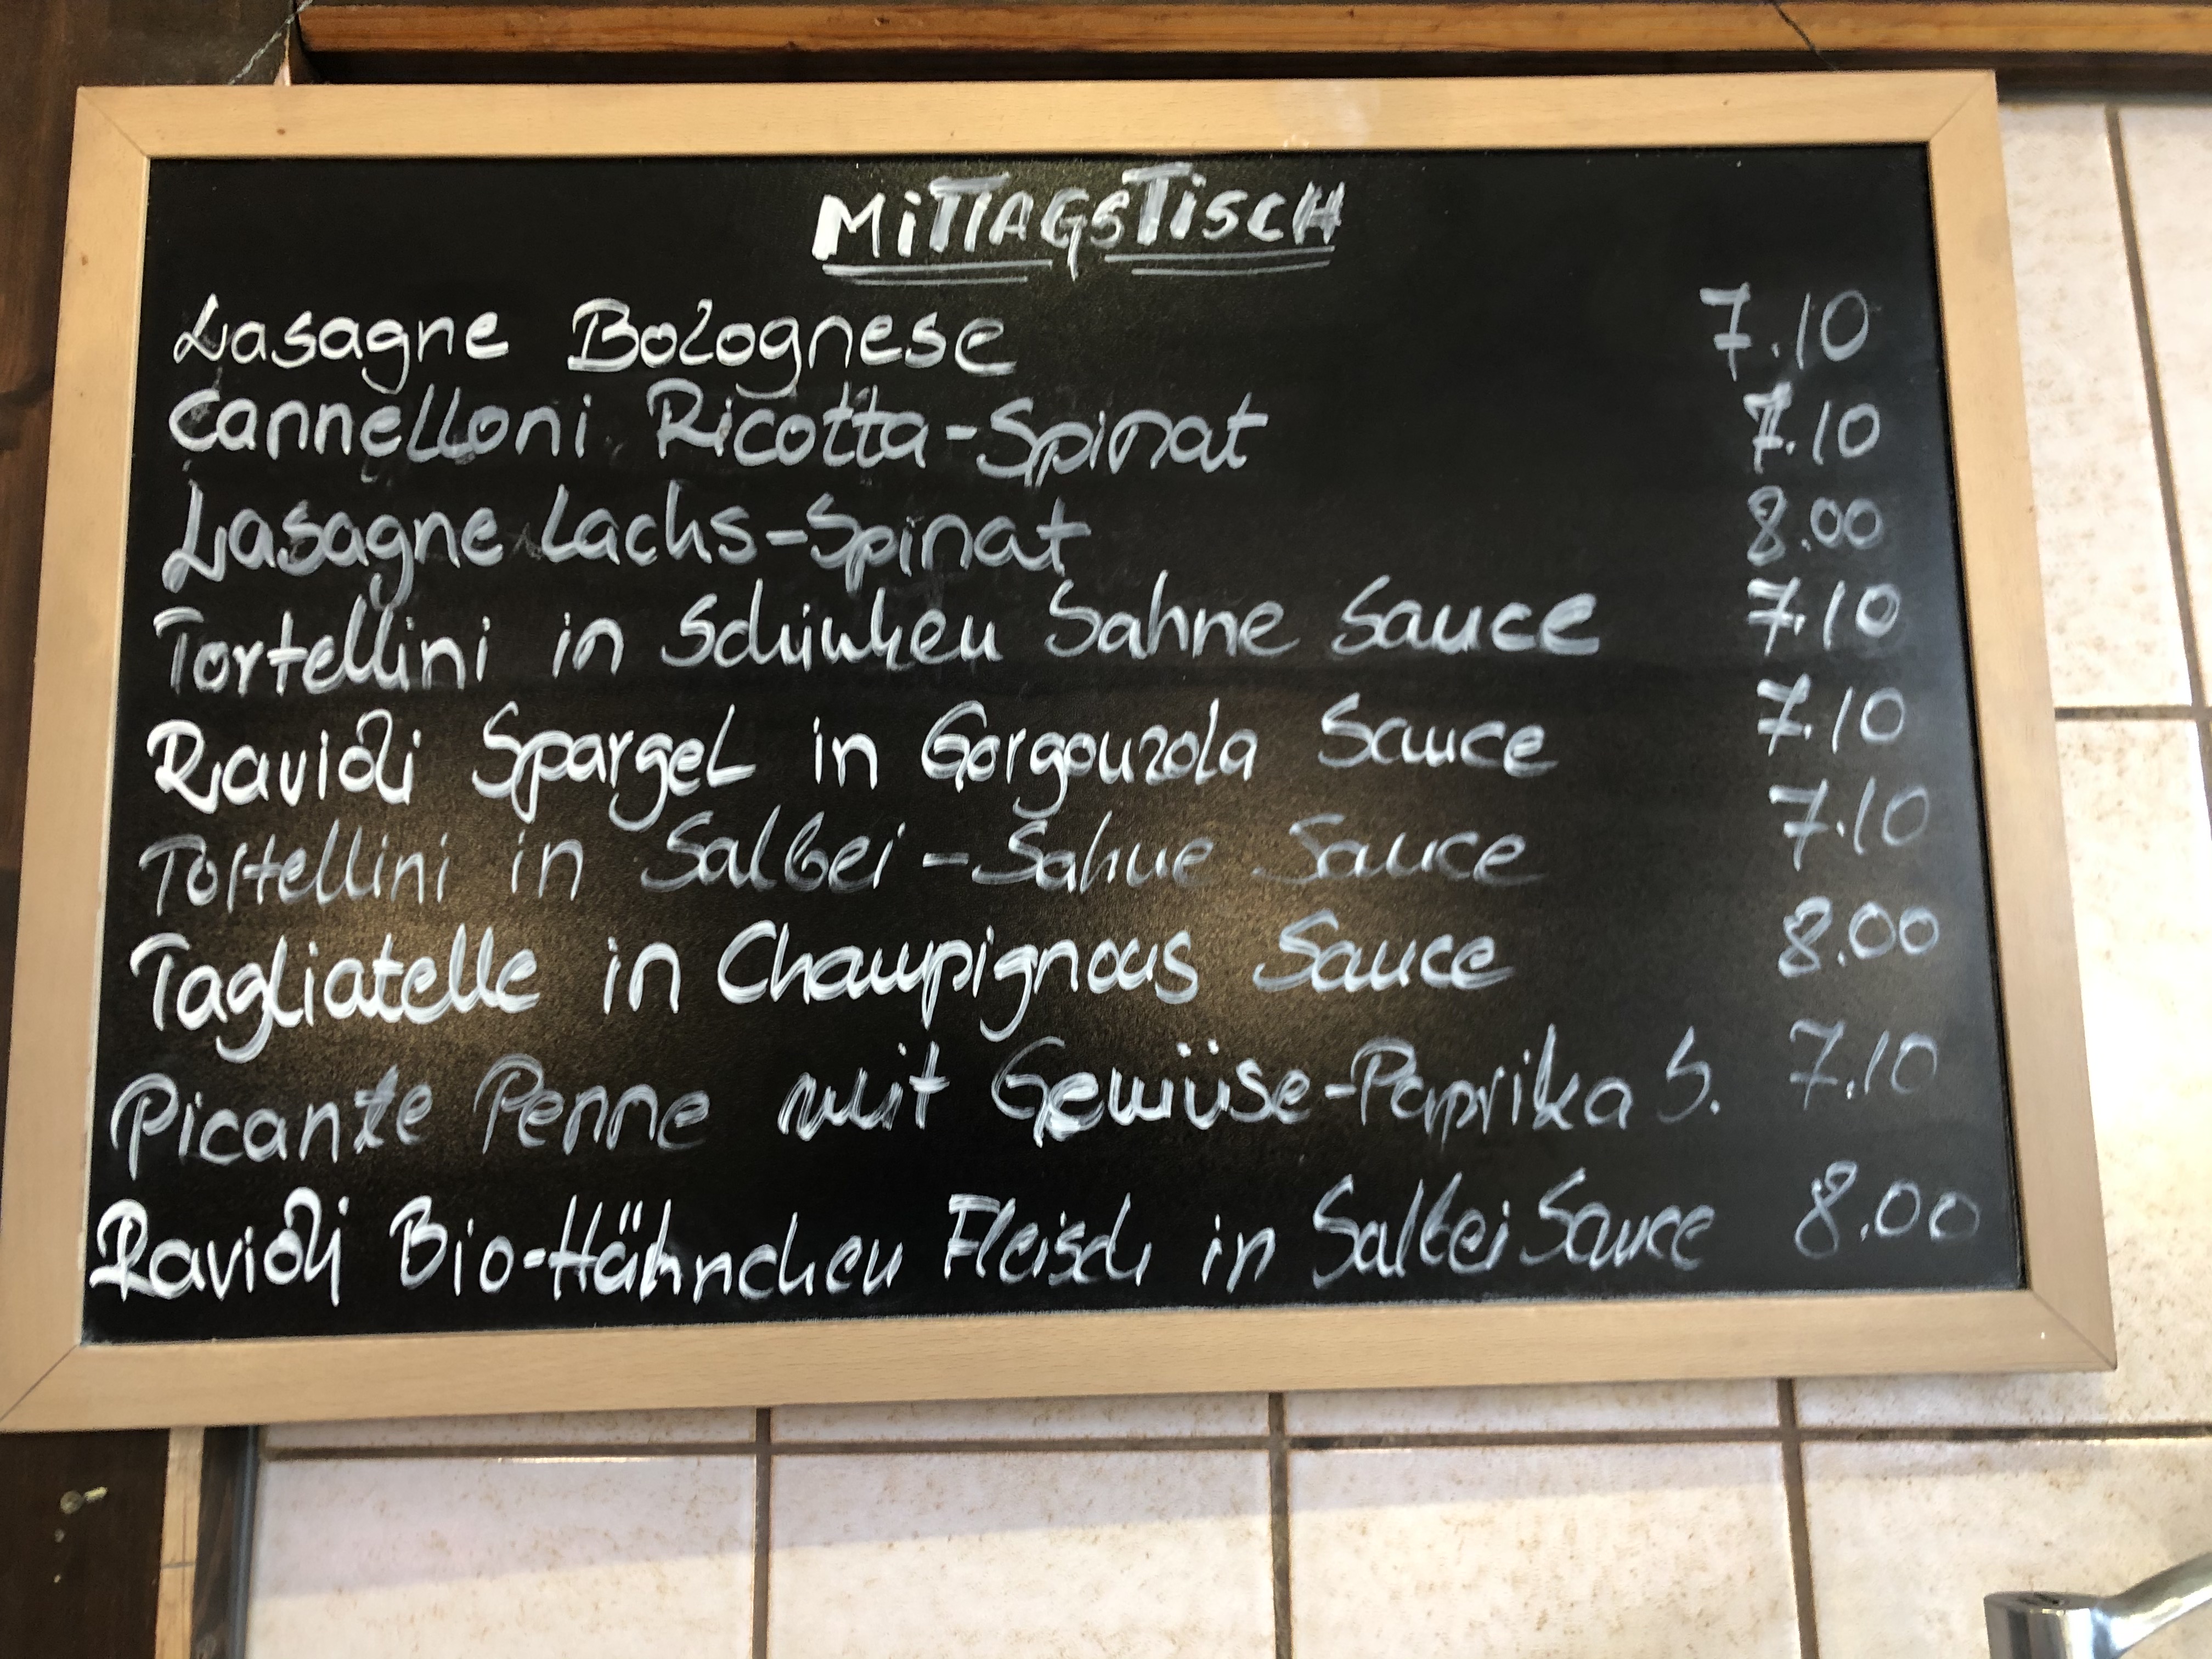 MiTTAGSTiSCH
Lasagne Bolognese 7.10
Cannelloni Ricotta-Spinat 7.10
Lasagne Lachs-Spinat 8.00
Tortellini in Schinken Sahne Sauce 7.10
Ravioli Spargel in Gorgonzola Sauce 7.10
Tortellini in Salbei-Sahne Sauce 7.10
Tagliatelle in Champignons Sauce 8.00
Picante Penne mit Gewüse-Paprika S. 7.10
Ravioli Bio-Hähnchen Fleisch in Salbei Sauce 8.00